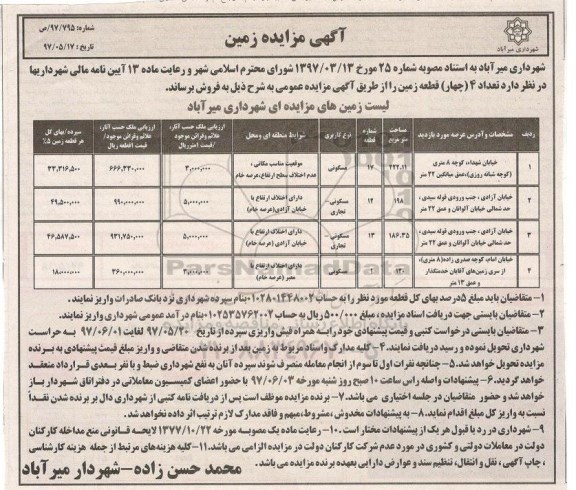 شماره: ۹۷/۷۹۵/ص
تاریخ: ۹۷/۰۵/۱۷
آگهی مزایده زمین
شهرداری میرآباد
شهرداری میرآباد به استناد مصوبه شماره ۲۵ مورخ ۱۳۹۷/۰۳/۱۳ شورای محترم اسلامی شهر و رعایت ماده ۱۳ آیین نامه مالی شهرداریها
در نظر دارد تعداد ۴ (چهار) قطعه زمین را از طریق آگهی مزایده عمومی به شرح ذیل به فروش برساند.
لیست زمین های مزایده ای شهرداری میرآباد
ردیف مشخصات و آدرس عرصه مورد بازدید مساحت متر مربع شماره قطعه نوع کاربری شرایط منطقه ای و محل ارزیابی ملک حسب آثار، علائم وقرائن موجود /قیمت ۱مترریال ارزیابی ملک حسب آثار، علائم وقرائن موجود/ قیمت ۱قطعه ریال سپرده/بهای کل هر قطعه زمین ۵٪
۱ خیابان شهداء، کوچه ۸ متری (کوچه شبانه روزی)،عمق میانگین ۲۲ متر ۲۲۲.۱۱ ۱۷ مسکونی موقعیت مناسب مکانی ، عدم اختلاف سطح ارتفاع،عرصه خام ۳,۰۰۰,۰۰۰ ۶۶۶,۳۳۰,۰۰۰ ۳۳,۳۱۶,۵۰۰
۲ خیابان آزادی ، جنب ورودی قوله سیدی، حد شمالی خیابان آلوانان و عمق ۲۲ متر ۱۹۸ ۱۴ مسکونی - تجاری دارای اختلاف ارتفاع با خیابان آزادی(عرصه خام) ۵,۰۰۰,۰۰۰ ۹۹۰,۰۰۰,۰۰۰ ۴۹,۵۰۰,۰۰۰
۳ خیابان آزادی ، جنب ورودی قوله سیدی، حد شمالی خیابان آلوانان و عمق ۲۲ متر ۱۸۶.۳۵ ۱۳ مسکونی - تجاری دارای اختلاف ارتفاع با خیابان آزادی (عرصه خام) ۵,۰۰۰,۰۰۰ ۹۳۱,۷۵۰,۰۰۰ ۴۶,۵۸۷,۵۰۰
۴ خیابان امام، کوچه صدری زاده(۸ متری)، از سری زمین‌های آقایان خدمتگذار و عمق ۱۳ متر ۱۲۰ ۱ مسکونی دارای اختلاف ارتفاع با معبر (عرصه خام) ۳,۰۰۰,۰۰۰ ۳۶۰,۰۰۰,۰۰۰ ۱۸,۰۰۰,۰۰۰
ParsNamadData
۱- متقاضیان باید مبلغ ۵درصد بهای کل قطعه مورد نظر را به حساب ۰۱۰۲۸۰۱۴۴۸۰۰۲بنام سپرده شهرداری نزد بانک صادرات واریز نمایند.
۲- متقاضیان بایستی جهت دریافت اسناد مزایده ، مبلغ ۵۰۰/۰۰۰ریال به حساب ۰۱۰۲۵۳۵۷۶۲۰۰۲بنام درآمد عمومی شهرداری واریز نمایند.
۳- متقاضیان بایستی درخواست کتبی و قیمت پیشنهادی خود را به همراه فیش واریزی سپرده از تاریخ ۹۷/۰۵/۲۰ لغایت ۹۷/۰۶/۰۱ به حراست
شهرداری تحویل نموده و رسید دریافت نمایند. ۴- کلیه مدارک واسناد مربوط به زمین بعد از برنده شدن متقاضی و واریز مبلغ قیمت پیشنهادی به برنده
مزایده تحویل خواهد شد.۵-چنانچه نفرات اول تا سوم از انجام معامله منصرف شوند سپرده آنان به نفع شهرداری ضبط و با نفر بعدی قرارداد منعقد
خواهد گردید. ۶-پیشنهادات واصله راس ساعت ۱۰ صبح روز شنبه مورخه ۹۷/۰۶/۰۳ با حضور اعضای کمیسیون معاملاتی در دفتر اتاق شهردار باز
خواهد شد و حضور متقاضیان در جلسه اختیاری می باشد. ۷- برنده مزایده موظف است پس از دریافت نامه کتبی از شهرداری دال بر برنده شدن نقداً
نسبت به واریز کل مبلغ اقدام نماید. ۸- به پیشنهادات مخدوش ،مشروط، مبهم و فاقد مدارک لازم ترتیب اثر داده نخواهد شد.
۹- شهرداری در رد یا قبول هر یک از پیشنهادات مختار است. ۱۰- رعایت ماده یک مصوبه مورخه ۱۳۷۷/۱۰/۲۲ لایحه قانونی منع مداخله کارکنان
دولت در معاملات دولتی و کشوری در مورد عدم شرکت کارکنان دولت در مزایده الزامی می باشد. ۱۱- کلیه هزینه‌های مرتبط از جمله هزینه کارشناسی
، چاپ آگهی ، نقل و انتقال، تنظیم سند و عوارض دارایی بعهده برنده مزایده می باشد.
محمد حسن زاده-شهردار میرآباد